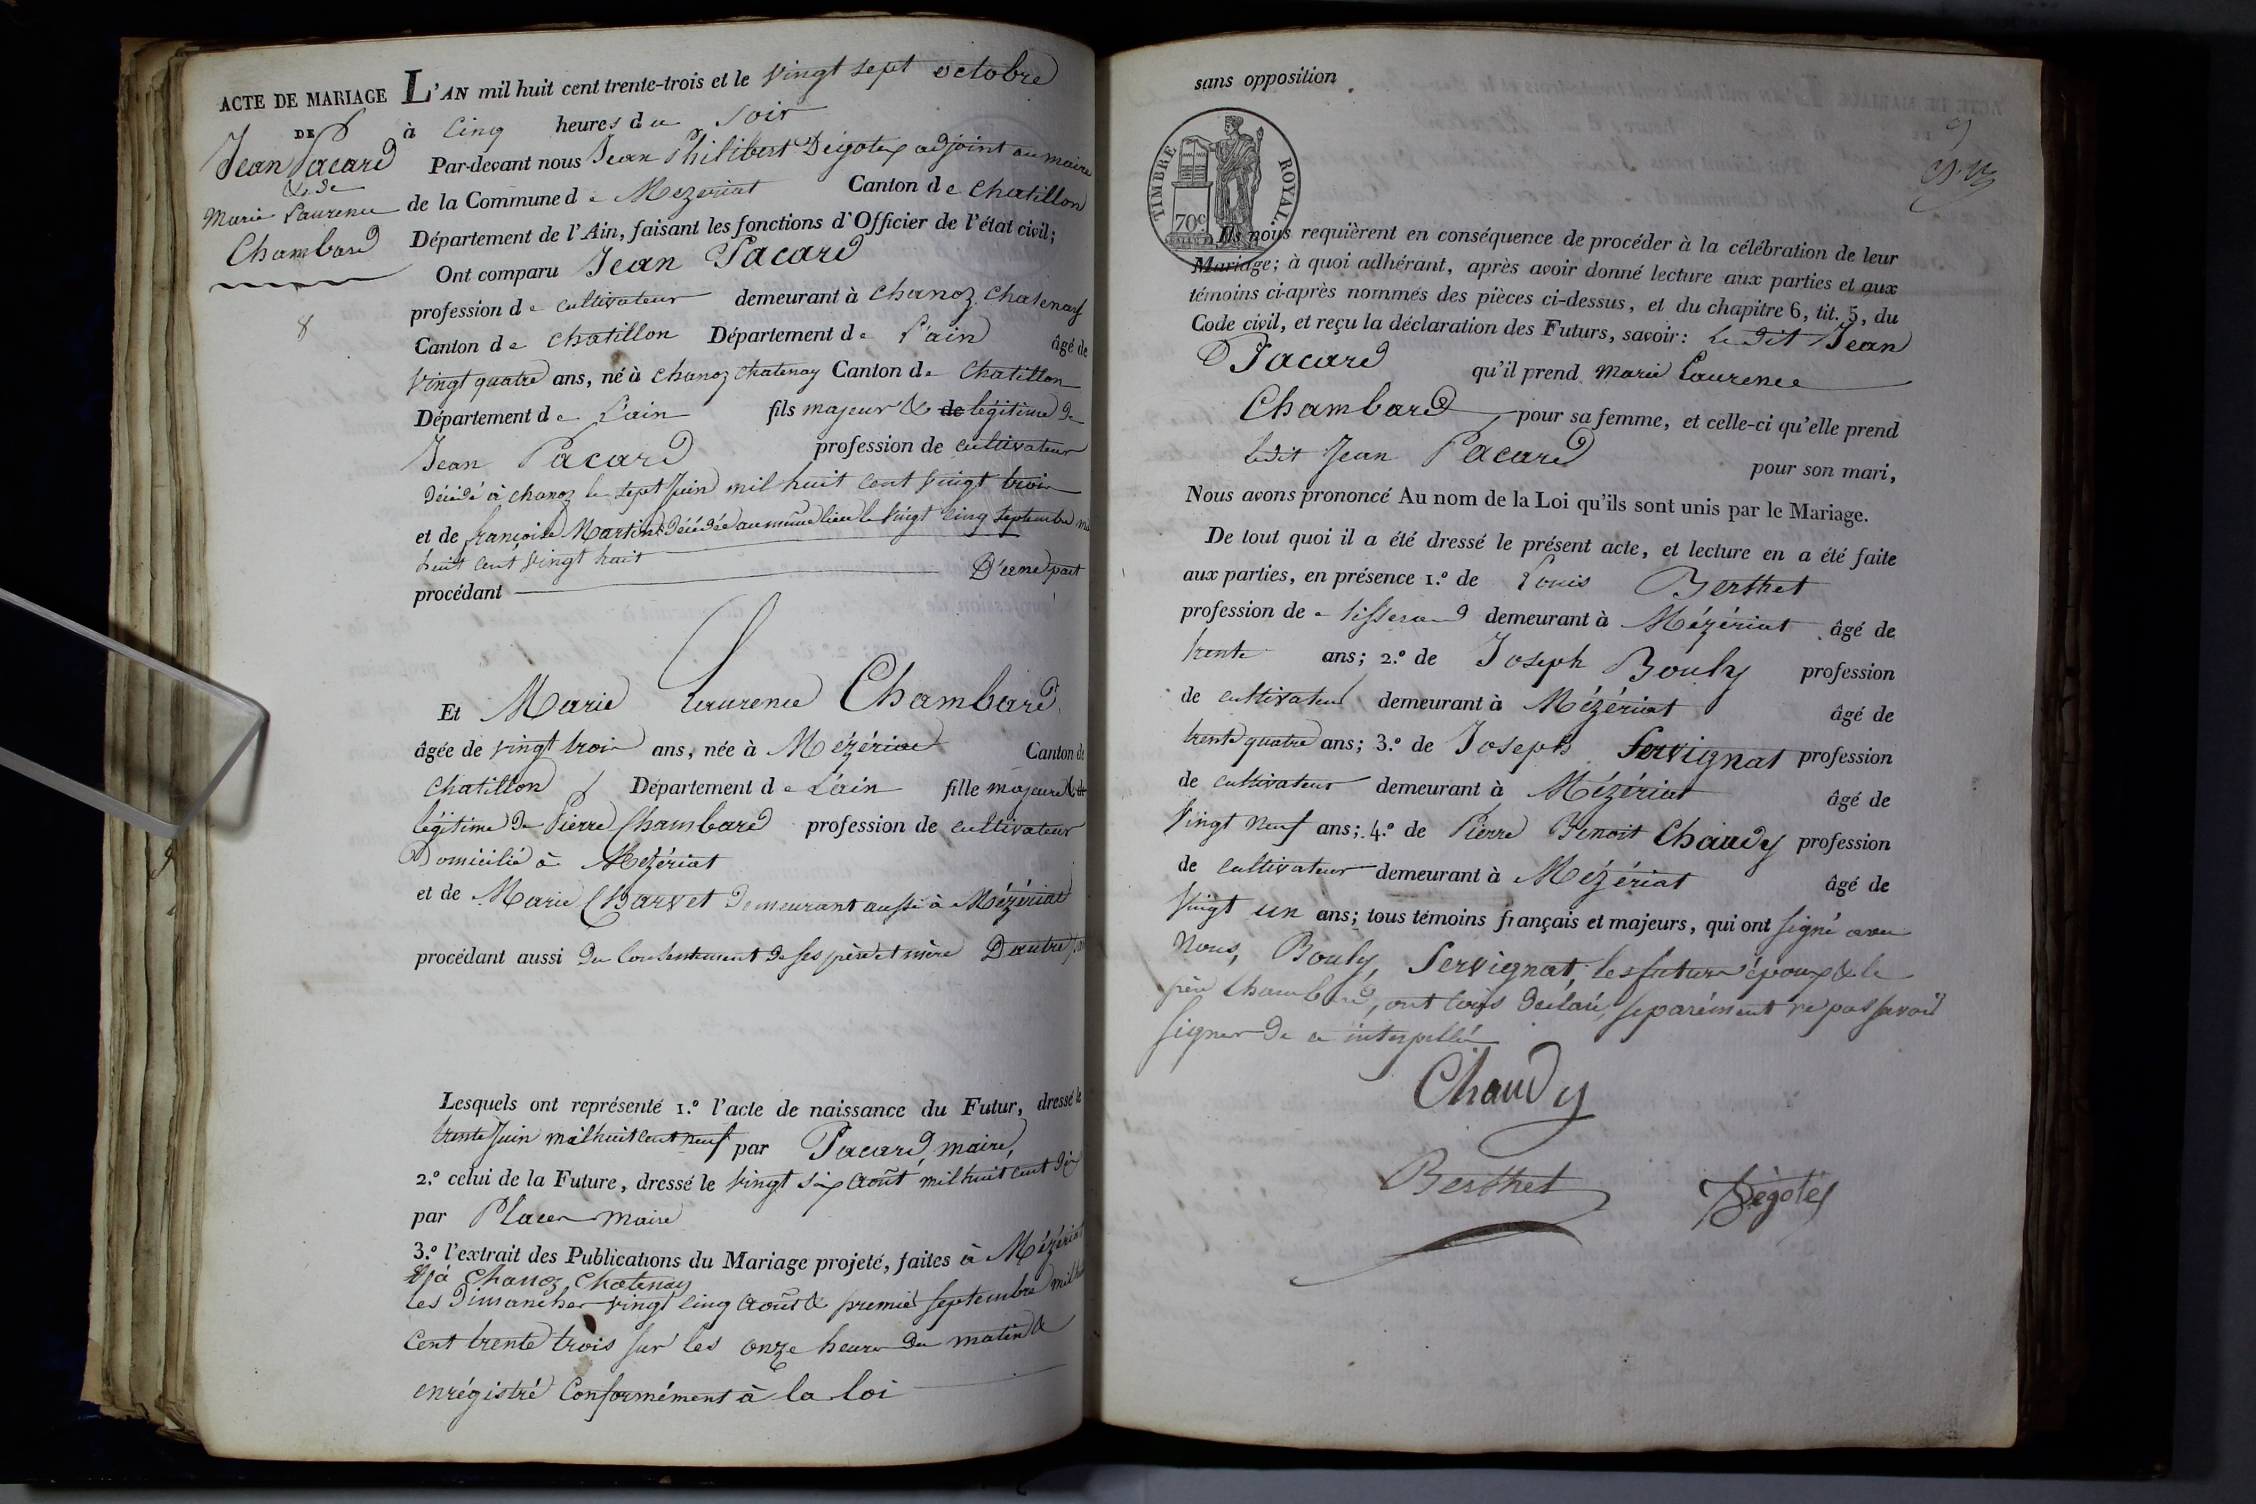 ACTE DE MARIAGE
DE
Jean Pacard
& de
Marie Laurence
Chambard
8
L'AN mil huit cent trente-trois et le vingt sept octobre
à cinq heures du soir
Par-devant nous Jean Philibert Dégotex adjoint au maire
de la Commune de Mezeriat Canton de Chatillon
Département de l'Ain, faisant les fonctions d'Officier de l'état civil;
Ont comparu Jean Pacard
profession de cultivateur demeurant à Chanoz Chatenay
Canton de Chatillon Département de l'ain âgé de
vingt quatre ans, né à Chanoz Chatenay Canton de Chatillon
Département de L'ain fils majeur & de légitime de
Jean Pacard profession de cultivateur
décédé à Chanoz le sept juin mil huit cent vingt trois
et de françoise Martin décédée au même lieu le vingt cinq septembre mil
huit cent vingt huit
procédant D'une part
Et Marie Laurence Chambard
âgée de vingt trois ans, née à Mézériat Canton de
Chatillon Département de L'ain fille majeure & de
légitime de Pierre Chambard profession de cultivateur
Domicilié à Mézériat
et de Marie Charvet demeurant aussi à Mézériat
procédant aussi du consentement de ses père et mère D'autre part
Lesquels ont représenté 1.º l'acte de naissance du Futur, dressé le
trente juin mil huit cent neuf par Pacard, maire,
2.º celui de la Future, dressé le vingt six août mil huit cent dix
par Placer maire
3.º l'extrait des Publications du Mariage projeté, faites à Mézériat
& à Chanoz Chatenay
les Dimanches vingt cinq août & premier septembre mil huit
Cent trente trois sur les onze heures du matin &
enrégistré Conformément à la loi
sans opposition
TIMBRE ROYAL.
70c
Ils nous requièrent en conséquence de procéder à la célébration de leur
Mariage; à quoi adhérant, après avoir donné lecture aux parties et aux
témoins ci-après nommés des pièces ci-dessus, et du chapitre 6, tit. 5, du
Code civil, et reçu la déclaration des Futurs, savoir: le dit Jean
Pacard qu'il prend Marie Laurence
Chambard pour sa femme, et celle-ci qu'elle prend
ledit Jean Pacard pour son mari,
Nous avons prononcé Au nom de la Loi qu'ils sont unis par le Mariage.
De tout quoi il a été dressé le présent acte, et lecture en a été faite
aux parties, en présence 1.º de Louis Berthet
profession de tisserand demeurant à Mézériat âgé de
trente ans; 2.º de Joseph Bouly profession
de cultivateur demeurant à Mézériat âgé de
trente quatre ans; 3.º de Joseph Servignat profession
de cultivateur demeurant à Mézériat âgé de
vingt neuf ans; 4.º de Pierre Benoit Chaudy profession
de cultivateur demeurant à Mézériat âgé de
vingt un ans; tous témoins français et majeurs, qui ont signé avec
Nous, Bouly, Servignat, les futurs époux & le
père Chambard, ont tous déclaré séparément ne pas savoir
signer de ce interpellé
Chaudy
Berthet
Dégotex